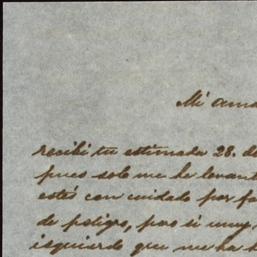 Mi ama
recibí tu estimada 28. de
pues solo me he levant
estés con cuidado por fa
de peligro, pero si muy
izquierdo que me ha h